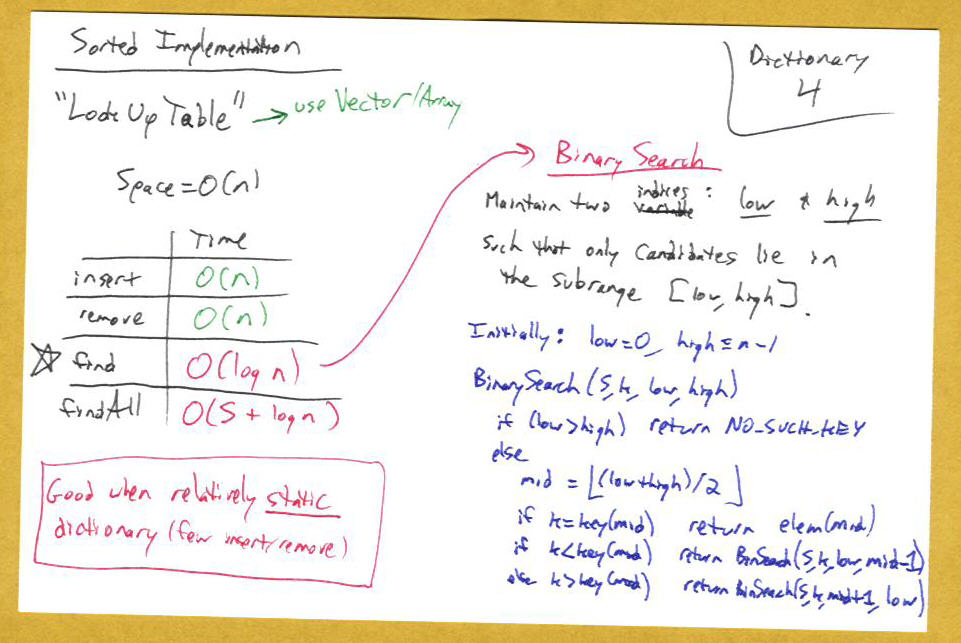 Sorted Implementation
"Look Up Table" → use Vector/Array
Space = O(n)
Time
insert O(n)
remove O(n)
☆ find O(log n)
findAll O(S + log n)
Good when relatively static
dictionary (few insert/remove)
Dictionary
4
Binary Search
Maintain two indices variable : low & high
such that only candidates lie in
the subrange [low, high].
Initially: low=0, high=n-1
BinarySearch(S, k, low, high)
if (low>high) return NO_SUCH_KEY
else
mid = ⌊(low+high)/2⌋
if k=key(mid) return elem(mid)
if k<key(mid) return BinSearch(S, k, low, mid-1)
else k>key(mid) return BinSearch(S, k, mid+1, low)